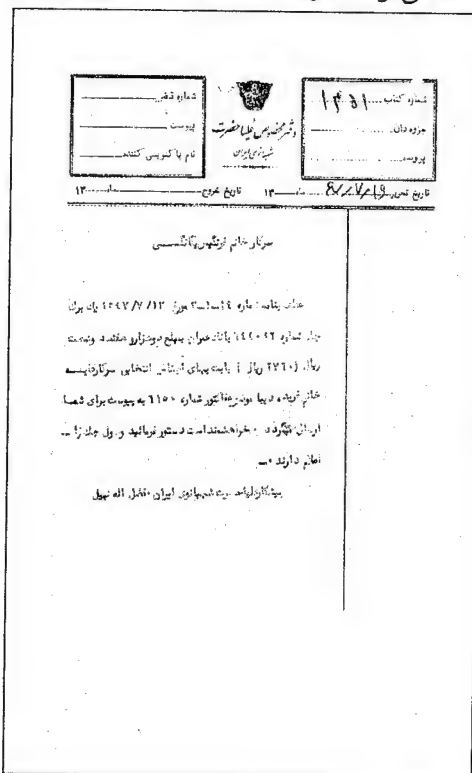 شماره کتاب ۱۳۵۱
جزوه دان
پرونده
دفتر مخصوص علیاحضرت
شهبانوی ایران
شماره قبلی
پیوست
نام پاکنویس کننده
تاریخ تحریر ماه ۱۳
تاریخ خروج ماه ۱۳
سرکار خانم
عطف بنامه شماره مورخ ۱۳۴۷/۷/۱۳ یک برگ
چک شماره بانک عمران بمبلغ دوهزار و هفتصد و شصت
ریال (۲۷۶۰ ریال) بابت بهای اجناس انتخابی سرکار
خانم فریده دیبا فاکتور شماره ۶۱۵۰ به پیوست برای شما
ارسال میگردد خواهشمند است دستور فرمائید وصول چک را
اعلام دارند
پیشکار علیاحضرت شهبانوی ایران فضل اله نبیل